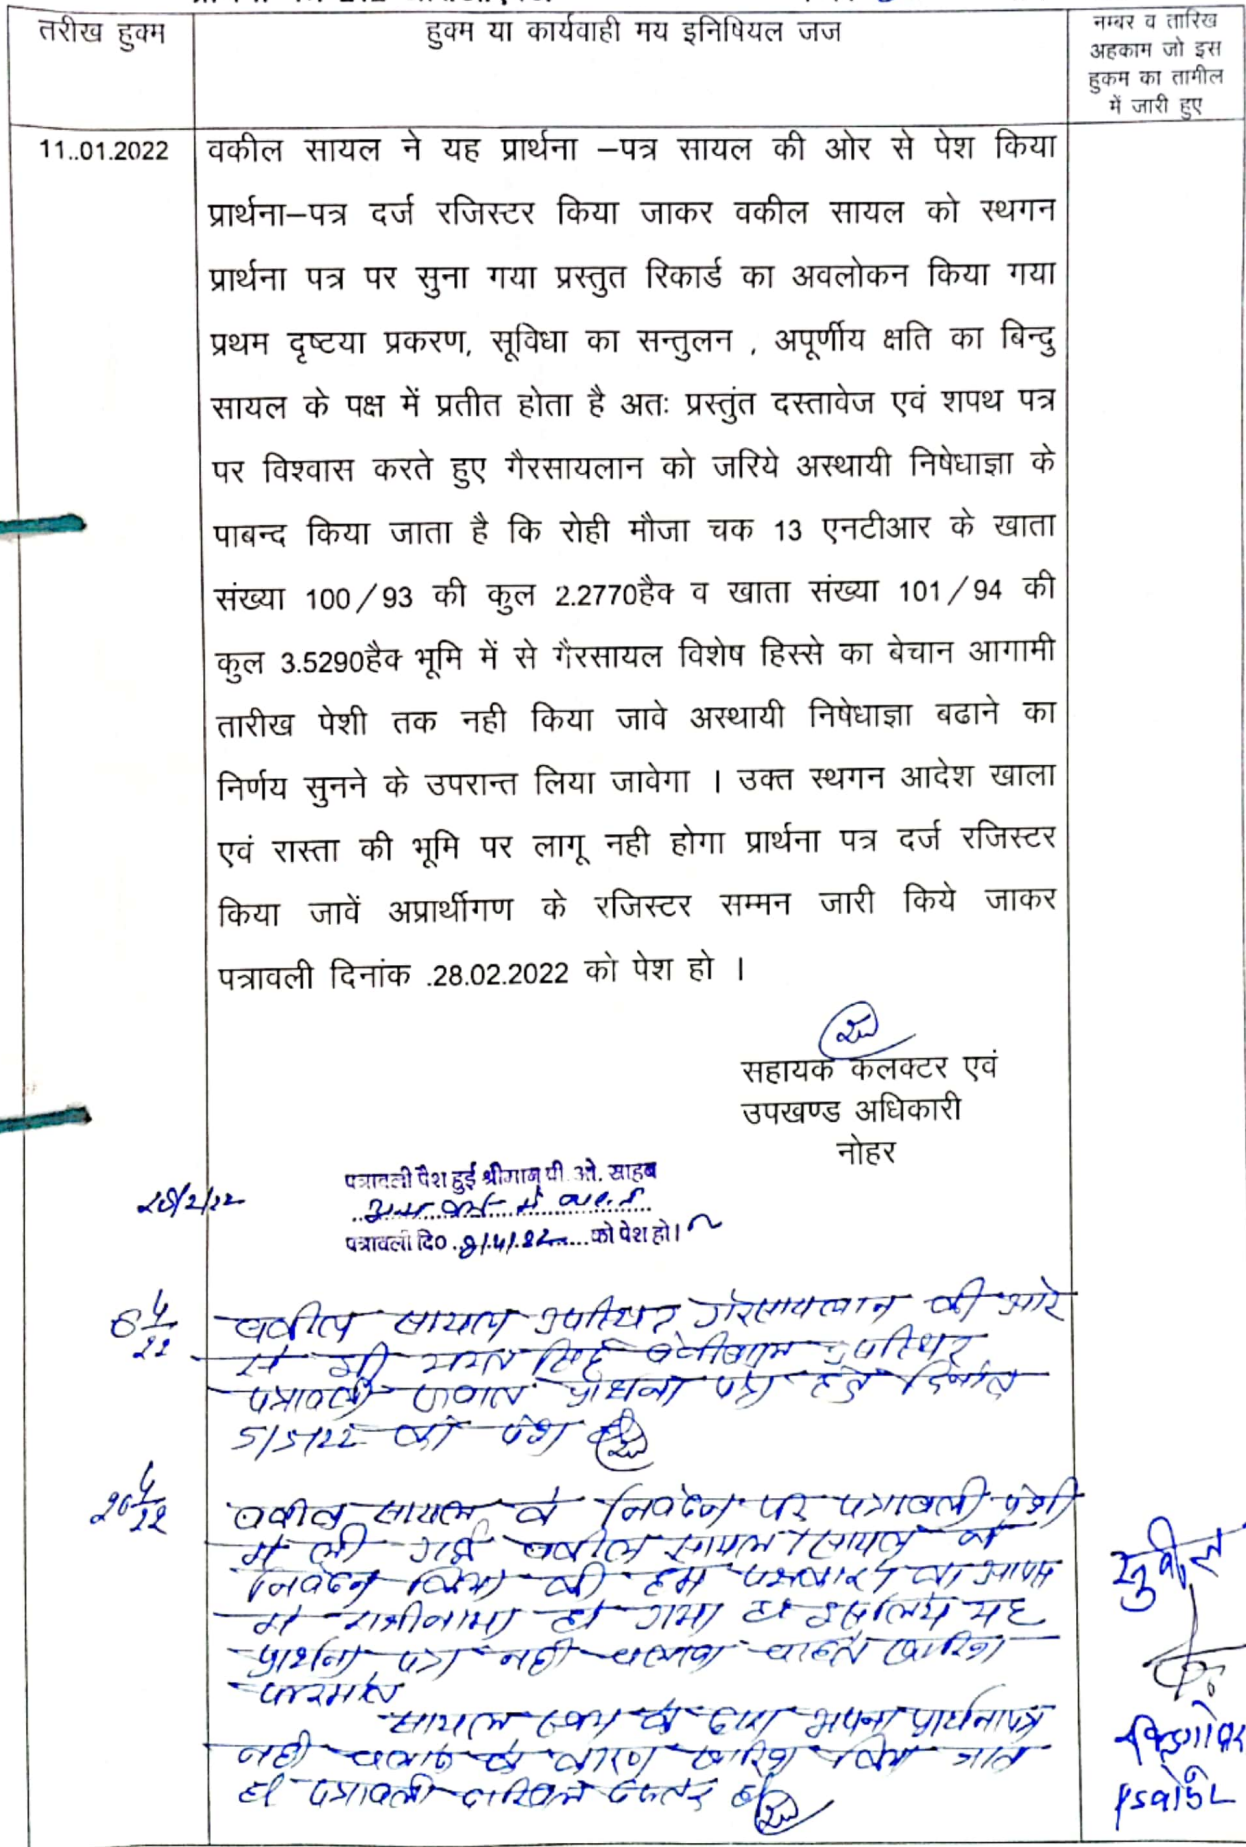 तरीख हुक्म
हुक्म या कार्यवाही मय इनिषियल जज
नम्बर व तारिख
अहकाम जो इस
हुकम का तागील
में जारी हुए
11..01.2022
वकील सायल ने यह प्रार्थना –पत्र सायल की ओर से पेश किया
प्रार्थना–पत्र दर्ज रजिस्टर किया जाकर वकील सायल को स्थगन
प्रार्थना पत्र पर सुना गया प्रस्तुत रिकार्ड का अवलोकन किया गया
प्रथम दृष्टया प्रकरण, सूविधा का सन्तुलन , अपूर्णीय क्षति का बिन्दु
सायल के पक्ष में प्रतीत होता है अतः प्रस्तुंत दस्तावेज एवं शपथ पत्र
पर विश्वास करते हुए गैरसायलान को जरिये अस्थायी निषेधाज्ञा के
पाबन्द किया जाता है कि रोही मौजा चक 13 एनटीआर के खाता
संख्या 100/93 की कुल 2.2770हैक व खाता संख्या 101/94 की
कुल 3.5290हैक भूमि में से गैरसायल विशेष हिस्से का बेचान आगामी
तारीख पेशी तक नही किया जावे अस्थायी निषेधाज्ञा बढाने का
निर्णय सुनने के उपरान्त लिया जावेगा । उक्त स्थगन आदेश खाला
एवं रास्ता की भूमि पर लागू नही होगा प्रार्थना पत्र दर्ज रजिस्टर
किया जावें अप्रार्थीगण के रजिस्टर सम्मन जारी किये जाकर
पत्रावली दिनांक .28.02.2022 को पेश हो ।
सहायक कलक्टर एवं
उपखण्ड अधिकारी
नोहर
28/2/22
पत्रावली पैश हुई श्रीमान् पी. ओ. साहब
पत्रावली दि० को पेश हो।
वकील सायल उपस्थित गैरसायलान की ओर
से श्री सिंह उपस्थित
पत्रावली जवाब प्रार्थना पत्र हेतु दिनांक
5/5/22 को पेश हो
वकील सायल के निवेदन पर पत्रावली पेशी
में ली गई वकील सायल सायल ने
निवेदन किया की हम पक्षकारान का आपस
में राजीनामा हो गया है इसलिये यह
प्रार्थना पत्र नही चलाना चाहते खारिज
फरमावे
सायल स्वयं के द्वारा अपना प्रार्थनापत्र
नही चलाने के कारण खारिज किया जाता
है पत्रावली दाखिल दफ्तर हो